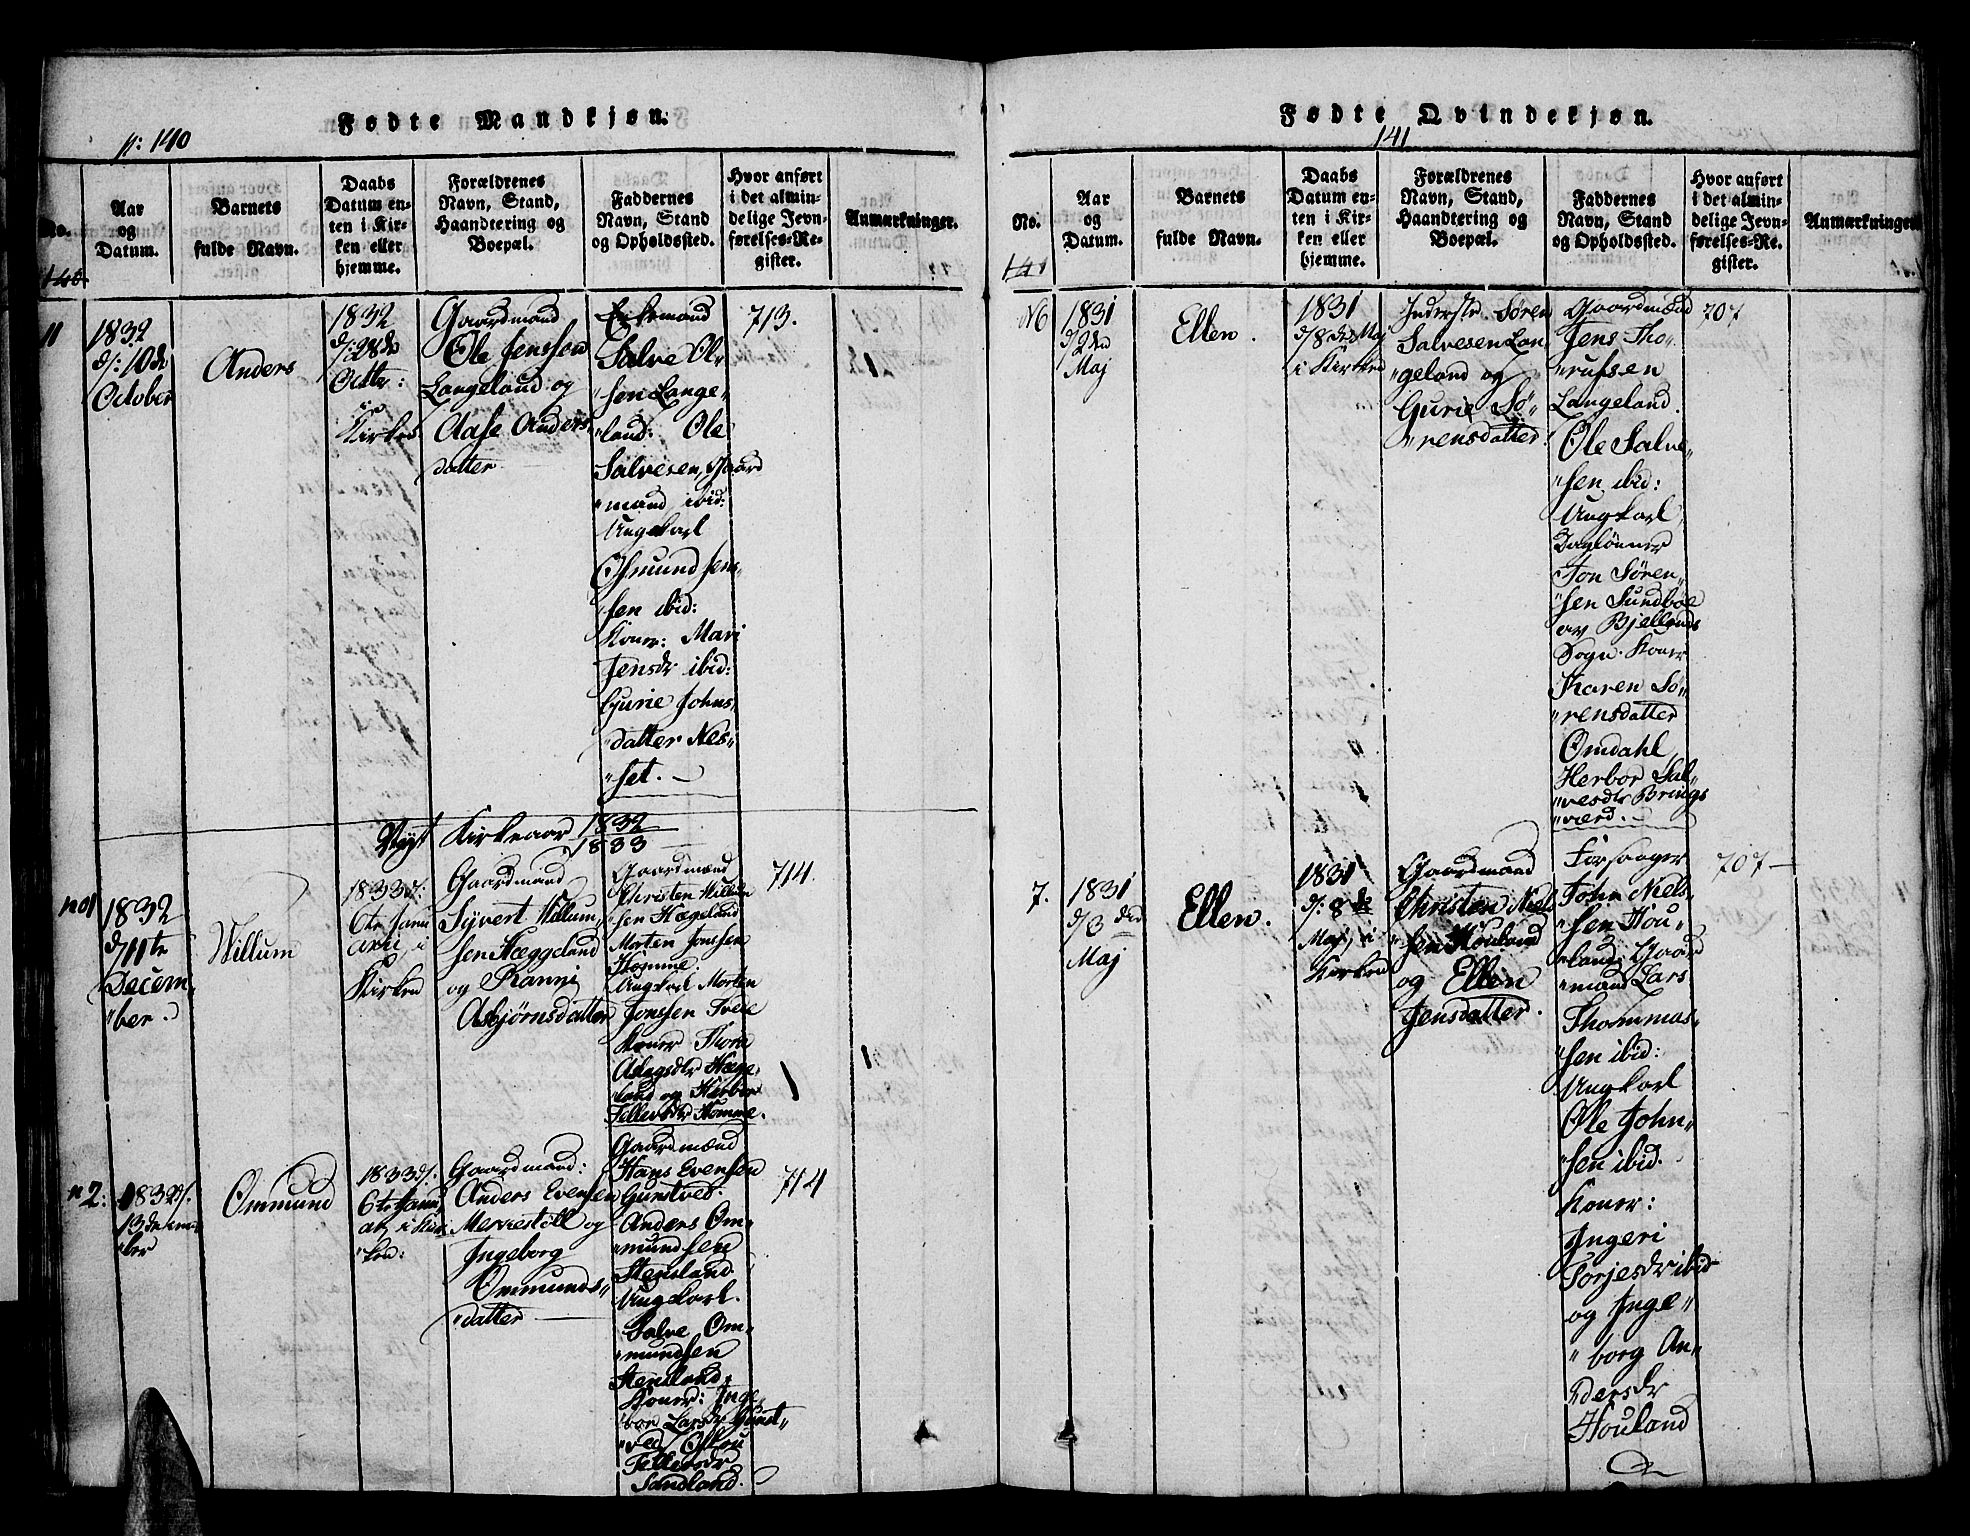 Fødte Mandkjøn.
p: 140
No.
Aar
og
Datum.
Barnets
fulde Navn.
Daabs
Datum en-
ten i Kir-
ken eller
hjemme.
Forældrenes
Navn, Stand,
Haandtering og
Boepæl.
Faddernes
Navn, Stand
og Opholdssted.
Hvor anført
i det almin-
delige Jevn-
førelses-Re-
gister.
Anmærkninger.
140
11
1832
d/: 10de
October
Anders
1832
d/: 28de
Octbr:
i
Kirken
Gaardmand
Ole Jenssen
Langeland og
Aase Anders
datter
Enkemand
Salve Ol-
"sen Lange-
"land: Ole
Salvesen, Gaard
"mand ibid:
Ungkarl
Osmund Jens-
"sen ibid:
Koner: Mari
Jensdr ibid:
Gurie Johns-
"datter Nes-
"set.
713.
Nyt Kirkeaar 1832
1833
no1
1832
d/11te
Decem-
"ber.
Willum
1833 d/:
6te Janu
arii, i
Kirken
Gaardmand
Syvert Willum-
sen Hæggeland
og Ranni
Asbjørnsdatter
Gaardmænd
Christen Willum
"sen Hægeland
Morten Jonssen
Homme.
Ungkarl Morten
Jonssen Tvete
Koner Thore
Aslagsdr Hæge-
"land og Herbor
Tellevsdr Homme.
714.
n2:
1832 d/:
13de decem-
"ber
Ommund
1833 d/:
6te Janu
ar, i Kir-
"ken:
Gaardmand:
Anders Evensen
Mervestøll og
Ingeborg
Ommunds-
"datter
Gaardmænd
Hans Evensen
Gunstved.
Anders Om-
"mundsen
Stensland
Ungkarl.
Salve Om-
"mundsen
Stensland,
Koner: Inge-
"bor Larsdr Gunst-
"ved / Oskou
Tellevsdr
Sandland.
714
Fødte Qvindekjøn.
141
No.
Aar
og
Datum.
Barnets
fulde Navn.
Daabs
Datum en-
ten i Kir-
ken eller
hjemme.
Forældrenes
Navn, Stand,
Haandtering og
Boepæl.
Faddernes
Navn, Stand
og Opholdssted.
Hvor anført
i det almin-
delige Jevn-
førelses-Re-
gister.
Anmærkninger
141
N6
1831
d/2den
Maj
Ellen.
1831
d/8de Maj
i Kirken
Inderste Søren
Salvesen Lan-
"geland og
Gurie Sø-
"rensdatter.
Gaardmænd
Jens Tho-
"rufsen
Langeland.
Ole Salve-
"sen ibid:
Ungkarl,
Daglönner
Jon Søren-
"sen Sundbøe
av Bjellands
Sogn. Koner
Karen Sø-
"rensdatter
Omdahl
Herbor Sal-
"vesdr Brings
"værd.
707
7.
1831
d/3den
Maj
Ellen.
1831
d/: 8de
Maj, i
Kirken
Gaardmand
Christen Niel-
"sen Houland
og Ellen
Jensdatter.
Forsanger
John Niels-
"sen Hou-
"land; Gaard
"mand Lars
Thommas-
"sen ibid:
Ungkarl
Ole John-
"sen ibid.
Koner:
Ingeri
Torjesdr ibid
og Inge-
"borg An-
"dersdr
Houland
707